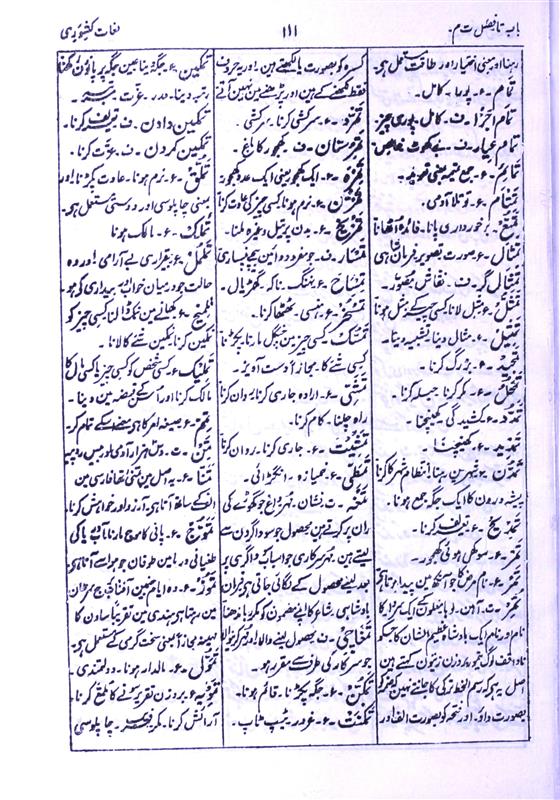 باب تا فصل ت م۔
۱۱۱
لغات کشوری
رہنا اور بمعنی اختیار اور طاقت مستعمل ہے۔
تمام۔ ع۔ پورا۔ کامل۔
تام اجزا۔ ف۔ کامل۔ پوری چیز
تمام عیار۔ ف۔ بے کھوٹ خالص
تمائم۔ ع۔ جمع تمیمہ بمعنی تعویذ۔
تمتام۔ ع۔ توتلا آدمی۔
تمتع۔ برخورداری پانا۔ فائدہ اٹھانا
تمثال۔ ع۔ صورت تصویر فرمان شاہی
تمثال گر۔ ف۔ نقاش مصور۔
تمثل۔ ع۔ مثل لانا کسی چیز کے مثل ہونا
تمثیل۔ ع۔ مثال دینا تشبیہ دینا۔
تمجید۔ ع۔ بزرگ کرنا۔
تمحل۔ ع۔ مکر کرنا۔ حیلہ کرنا۔
تمدد۔ ع۔ کشیدگی۔ کھنچنا۔
تمدید۔ ع۔ کھینچنا۔
تمدن۔ ع۔ شہر میں رہنا۔ انتظام شہر کا کرنا
پیشہ وروں کا ایک جگہ جمع ہونا۔
تمدیح۔ ع۔ تعریف کرنا۔
تمر۔ ع۔ سوکھی ہوئی کھجور۔
تمر۔ ع۔ نام مرض کا جو آنکھ میں پیدا ہوتا ہے
تمر۔ ت۔ آہن۔ لوہا
نام اور نام ایک بادشاہ عظیم الشان کا جسکو
ناواقف لوگ تیمور بروزن زیتون کہتے ہیں
اصل یہ ہے کہ رسم الخط ترکی کا جانتے نہیں کہ ضمہ کو
بصورت داؤ۔ اور فتحہ کو بصورت الف اور
کسرہ کو بصورت یا لکھتے ہیں اور یہ حرف
فقط لکھنے کے ہیں اور پڑھنے میں نہیں آتے
تمرد۔ ع۔ سرکشی کرنا۔ سرکشی۔
تمرستان۔ ف۔ کھجور کا باغ۔
تمرہ۔ ع۔ ایک کھجور یعنی ایک عدد کھجور
تمرن۔ نرم ہونا۔ کسی چیز کی عادت کرنا
تمریخ۔ ع۔ بدن پر تیل وغیرہ ملنا۔
تمسار۔ ف۔
تمساح۔ ع۔ نہنگ۔ ناکہ۔ گھڑیال۔
تمسخر۔ ع۔ ہنسی۔ ٹھٹھا کرنا۔
تمسک۔ ع۔ کسی چیز میں چنگل مارنا۔ پکڑنا
کسی شے کا۔ مجازاً دست آویز۔
تمشی۔ ع۔ ارادہ جاری کرنا۔ رواں کرنا
راہ چلنا۔ کام کرنا۔
تمشیت۔ ع۔ جاری کرنا۔ رواں کرنا
تمطی۔ ع۔ خمیازہ۔ انگڑائی۔
تمغہ۔ ت۔ نشان۔ مہر۔ داغ جو گھوڑے کی
ران پر کرتے ہیں محصول جو سوداگروں سے
لیتے ہیں۔ مہر سرکاری جو اسباب سوداگری پر
بعد لینے محصول کے لگائی جاتی ہے۔ فرمان
بادشاہی۔ شاعر کا اپنے مضمون کو مکرر باندھنا
تمغاچی۔ ف۔ محصول لینے والا اور مہر کرنے والا
جو سرکار کی طرف سے مقرر ہو۔
تمکن۔ ع۔ جگہ پکڑنا۔ قائم ہونا۔
تمکنت۔ ع۔ غرور۔ ٹیپ ٹاپ۔
تمکین۔ ع۔ جگہ بنا۔ عین جگہ پر پاؤں رکھنا
رتبہ دینا۔ قدر۔ عزت۔ مرتبہ۔
تمکین دادن۔ ف۔ تعریف کرنا۔
تمکین کردن۔ ف۔ عزت کرنا۔
تملق۔ ع۔ نرم ہونا۔ عادت پکڑنا۔ اور
بمعنی چاپلوسی اور دوستی مستعمل ہے۔
تملک۔ ع۔ مالک ہونا
تململ۔ ع۔ بیقراری بے آرامی اور وہ
حالت جو درمیان خواب و بیداری کے ہو۔
تملیح۔ ع۔ کھانے میں نمک ڈالنا کسی چیز کو
نمکین کرنا۔ نمکین شے کا لانا۔
تملیک۔ ع۔ کسی شخص کو کسی چیز یا کسی مال کا
مالک کرنا اور اسکے قبضہ میں دینا۔
تمم۔ ع۔ صیغہ امر کا ہے معنے اس کے تمام کر۔
تمن۔ ت۔ دس ہزار آدمی اور بیس روپیہ
تمنا۔ ع۔ یہ اصل میں تمنی تھا فارسی میں
الف کے ساتھ آتا ہے۔ آرزو اور خواہش کرنا۔
تموج۔ ع۔ پانی کا موج مارنا اور پانی کی
طغیانی اور ایسی طوفان جو ہوا سے آتا ہے
تموز۔ ع۔ وہ ایام جن میں آفتاب برج سرطان
میں رہتا ہے ہندی میں تقریباً ساون کا
مہینہ مجازاً بمعنی سخت گرمی کے مستعمل ہے۔
تمول۔ ع۔ مالدار ہونا۔ دولتمندی۔
تمویہ۔ ع۔ بروزن تقریر۔ سونے کا ملمع کرنا۔
آرائش کرنا۔ مکر۔ فریب۔ چاپلوسی